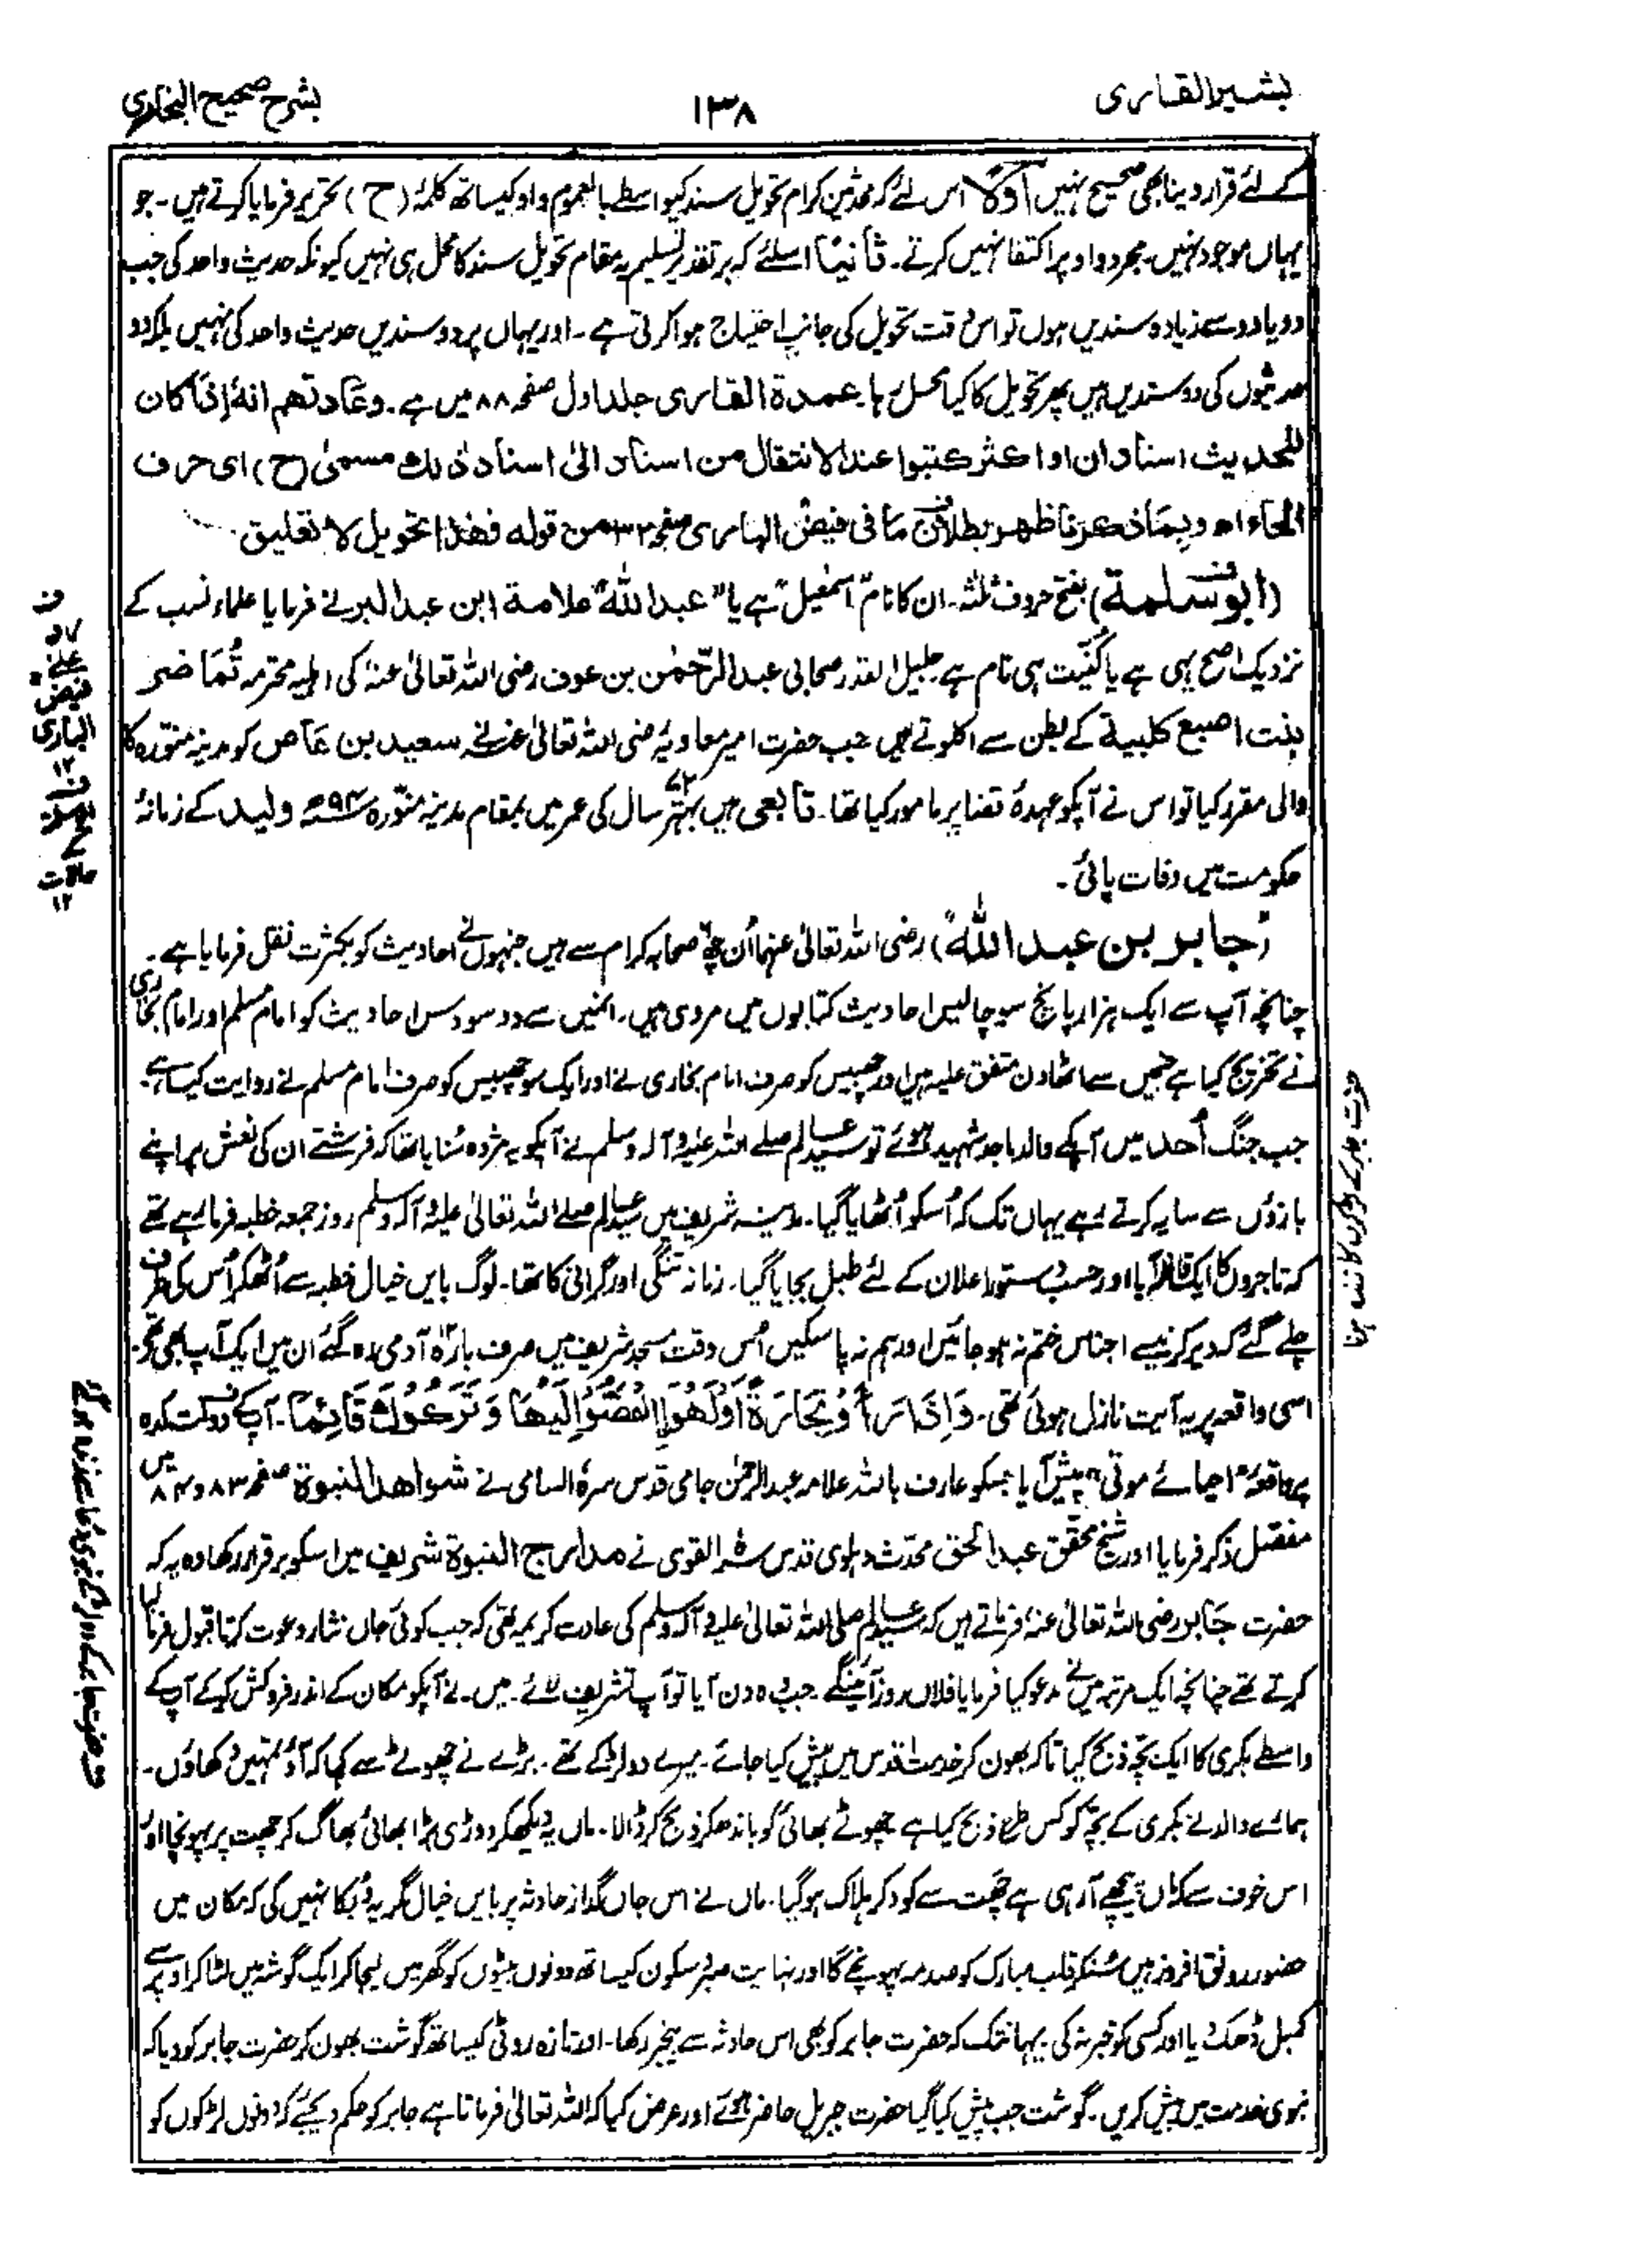 بشیرالقاری
۱۳۸
بشرح صحیح البخاری
کے لئے قرار دینا بھی صحیح نہیں اولاً اس لئے کہ محدثین کرام تحویل سند کیواسطے بالعموم واو کیساتھ کلمۂ (ح) تحریر فرمایا کرتے ہیں۔ جو
یہاں موجود نہیں۔ مجرد واو پر اکتفا نہیں کرتے۔ ثانیاً اسلئے کہ بر تقدیر تسلیم یہ مقام تحویل سند کا محل ہی نہیں کیونکہ حدیث واحد کی جب
دو یا دو سے زیادہ سندیں ہوں تو اس وقت تحویل کی جانب احتیاج ہوا کرتی ہے۔ اور یہاں پر دو سندیں حدیث واحد کی نہیں بلکہ دو
حدیثوں کی دو سندیں ہیں پھر تحویل کا کیا محل رہا۔ عمدۃ القاری جلد اول صفحہ ۸۸ میں ہے۔ وعادتهم انہٗ إذا کان
للحدیث اسنادان او اکثر کتبوا عند الانتقال من اسناد الیٰ اسناد ذٰلک مسمیٰ (ح) ای حرف
الحاء اھ وبما ذکرنا ظهر بطلان ما فی فیض الباری صفحہ ۳۲ من قولہ فهٰذا تحویل لا تعلیق۔
(ابو سلمة) بفتح حروف ثلٰثہ۔ ان کا نام اسمٰعیل ہے یا "عبداللہ" علامة ابن عبدالبر نے فرمایا علماء نسب کے
نزدیک اصح یہی ہے یا کنیت ہی نام ہے جلیل القدر صحابی عبدالرحمٰن بن عوف رضی اللہ تعالیٰ عنہٗ کی اہلیہ محترمہ تُماضر
بنت اصبع کلبیة کے بطن سے اکلوتے ہیں جب حضرت امیر معاویہ رضی اللہ تعالیٰ عنہٗ نے سعید بن عاص کو مدینہ منوّرہ کا
والی مقرر کیا تو اس نے آپکو عہدۂ قضا پر مامور کیا تھا۔ تابعی ہیں بہتّر ۷۲ سال کی عمر میں بمقام مدینہ منوّرہ ۹۴ھ ولید کے زمانۂ
حکومت میں وفات پائی۔
(جابر بن عبداللہ) رضی اللہ تعالیٰ عنہما اُن چھ صحابہ کرام سے ہیں جنہوں نے احادیث کو بکثرت نقل فرمایا ہے۔
چنانچہ آپ سے ایک ہزار پانچ سو چالیس احادیث کتابوں میں مروی ہیں۔ انمیں سے دو سو دس احادیث کو امام مسلم اور امام بخاری
نے تخریج کیا ہے جنمیں سے اٹھاون متفق علیہ ہیں اور چھبیس کو صرف امام بخاری نے اور ایک سو چھبیس کو صرف امام مسلم نے روایت کیا ہے۔
جب جنگ اُحد میں آپکے والد ماجد شہید ہوئے تو سید عالم صلے اللہ علیہ وآلہ وسلم نے آپکو یہ مژدہ سُنایا تھا کہ فرشتے ان کی نعش پر اپنے
بازؤں سے سایہ کرتے رہے یہاں تک کہ اُسکو اُٹھایا گیا۔ مدینہ شریف میں سید عالم صلے اللہ تعالیٰ علیہ وآلہ وسلم روز جمعہ خطبہ فرما رہے تھے
کہ تاجروں کا ایک قافلہ آیا اور حسب دستور اعلان کے لئے طبل بجایا گیا۔ زمانہ تنگی اور گرانی کا تھا۔ لوگ بایں خیال خطبہ سے اُٹھکر اُس کی طرف
چلے گئے کہ دیر کرنیسے اجناس ختم نہ ہو جائیں اور ہم نہ پا سکیں اُس وقت مسجد شریف میں صرف بارہ آدمی رہ گئے ان میں ایک آپ بھی تھے۔
اسی واقعہ پر یہ آیت نازل ہوئی تھی۔ وَإِذَا رَأَوْ تِجَارَةً أَوْ لَهْوًا إِنْفَضُّوْا إِلَيْهَا وَتَرَكُوْكَ قَائِمًا۔ آپکے دولت کدہ
پر واقعۂ "احیائے موتی" پیش آیا جسکو عارف باللہ علامہ عبدالرحمٰن جامی قدس سرہٗ السامی نے شواهد النبوة صفحہ ۸۳ و ۸۴ میں
مفصّل ذکر فرمایا اور شیخ محقق عبدالحق محدّث دہلوی قدس سرہٗ القوی نے مدارج النبوة شریف میں اسکو برقرار رکھا وہ یہ کہ
حضرت جابر رضی اللہ تعالیٰ عنہٗ فرماتے ہیں کہ سید عالم صلی اللہ تعالیٰ علیہ وآلہ وسلم کی عادت کریمہ تھی کہ جب کوئی جاں نثار دعوت کرتا قبول فرمالیا
کرتے تھے چنانچہ ایک مرتبہ میں نے مدعو کیا فرمایا فلاں روز آئینگے جب وہ دن آیا تو آپ تشریف لائے۔ میں نے آپکو مکان کے اندر فروکش کرکے آپ کے
واسطے بکری کا ایک بچّہ ذبح کیا تاکہ بھون کر خدمت اقدس میں پیش کیا جائے۔ میرے دو لڑکے تھے۔ بڑے نے چھوٹے سے کہا کہ آؤ تمہیں دکھاؤں۔
ہمارے والد نے بکری کے بچہ کو کس طرح ذبح کیا ہے چھوٹے بھائی کو باندھکر ذبح کر ڈالا۔ ماں یہ دیکھکر دوڑی بڑا بھائی بھاگ کر چھت پر پہونچا اور
اس خوف سے کہ ماں پیچھے آرہی ہے چھت سے کود کر ہلاک ہوگیا۔ ماں نے اس جاں گداز حادثہ پر بایں خیال گریہ و بُکا نہیں کی کہ مکان میں
حضور رونق افروز ہیں سُنکر قلب مبارک کو صدمہ پہونچے گا اور نہایت صبر و سکون کیساتھ دونوں بیٹوں کو گھر میں لیجا کر ایک گوشہ میں لٹا کر اوپر سے
کمبل ڈھک دیا اور کسی کو خبر نہ کی یہانتک کہ حضرت جابر کو بھی اس حادثہ سے بیخبر رکھا۔ اور تازہ روٹی کیساتھ گوشت بھون کر حضرت جابر کو دیا کہ
نبوی خدمت میں پیش کریں۔ گوشت جب پیش کیا گیا حضرت جبریل حاضر ہوئے اور عرض کیا کہ اللہ تعالیٰ فرماتا ہے جابر کو حکم دیجئے کہ دونوں لڑکوں کو
فیض
الباری
۱۲
حالات
۱۲